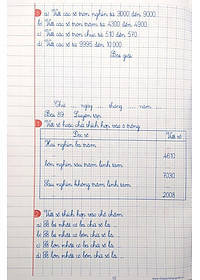 a) Viết các số tròn nghìn từ 3000 đến 9000.
b) Viết các số tròn trăm từ 4300 đến 4900.
c) Viết các số tròn chục từ 510 đến 570.
d) Viết các số từ 9995 đến 10 000.
Bài giải
Thứ ... ngày ... tháng ... năm ...
Bài 89: Luyện tập
Viết số hoặc chữ thích hợp vào ô trống.
Đọc số Viết số
Hai nghìn ba trăm
4610
Bốn nghìn sáu trăm linh tám
7030
Sáu nghìn không trăm linh tám
2008
Viết số thích hợp vào chỗ chấm.
a) Số bé nhất có ba chữ số là ...
b) Số lớn nhất có ba chữ số là ...
c) Số bé nhất có bốn chữ số là ...
d) Số lớn nhất có bốn chữ số là ...